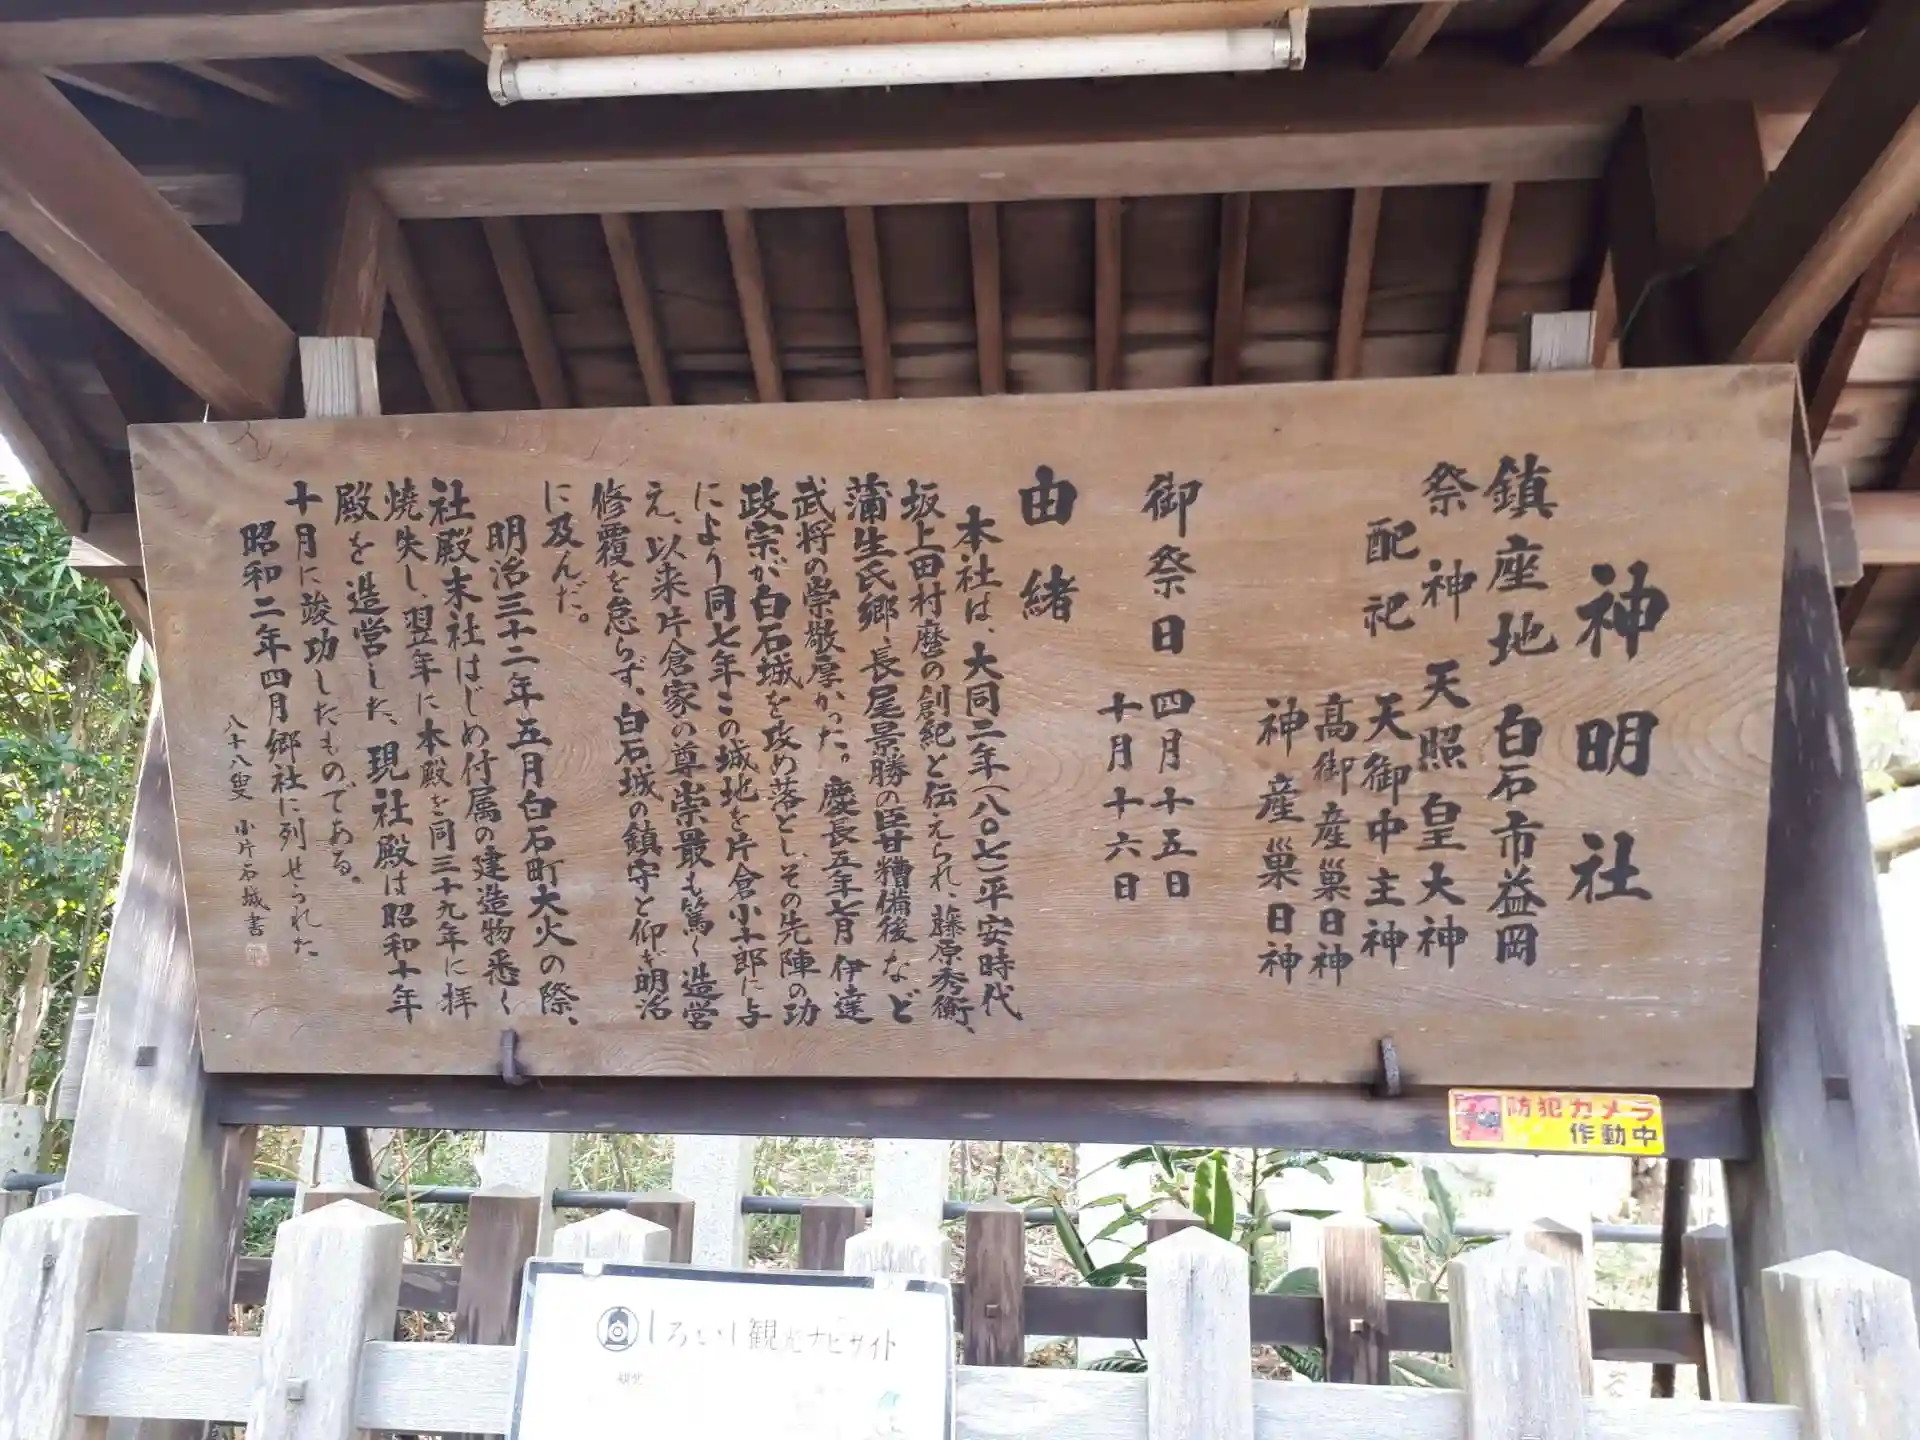 神明社
鎮座地 白石市益岡
祭神 天照皇大神
配祀 天御中主神
高御産巣日神
神産巣日神
御祭日 四月十五日
十月十六日
由緒
本社は、大同二年(八〇七)平安時代
坂上田村麿の創紀と伝えられ、藤原秀衡、
蒲生氏郷、長尾景勝の臣甘糟備後など
武将の崇敬厚かった。慶長五年七月伊達
政宗が白石城を攻め落とし、その先陣の功
により同七年この城地を片倉小十郎に与
え、以来片倉家の尊崇最も篤く造営
修覆を怠らず、白石城の鎮守と仰ぎ明治
に及んだ。
明治三十二年五月白石町大火の際、
社殿末社はじめ付属の建造物悉く
焼失し、翌年に本殿を同三十九年に拝
殿を造営した、現社殿は昭和十年
十月に竣功したものである。
昭和二年四月郷社に列せられた
八十八叟 小片石城書
防犯カメラ
作動中
しろいし観光ナビサイト